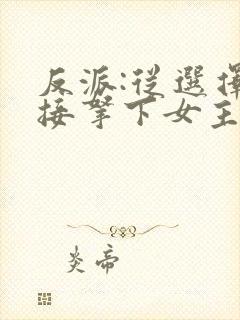 反派:從選擇
接拏下女主
炎帝